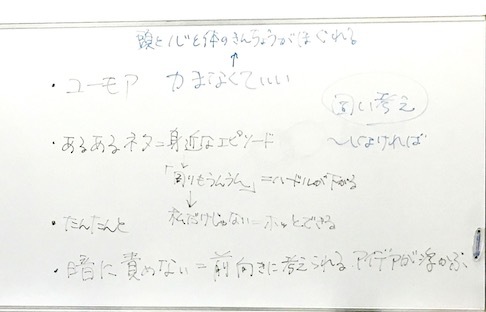 頭と心と体のきんちょうがほぐれる
↑
・ユーモア 力まなくていい
固い考え
・あるあるネタ=身近なエピソード
〜しなければ
=ハードルが下がる
↓
・たんたんと 私だけじゃない=ホッとできる
・暗に責めない=前向きに考えられる アイデアが浮かぶ